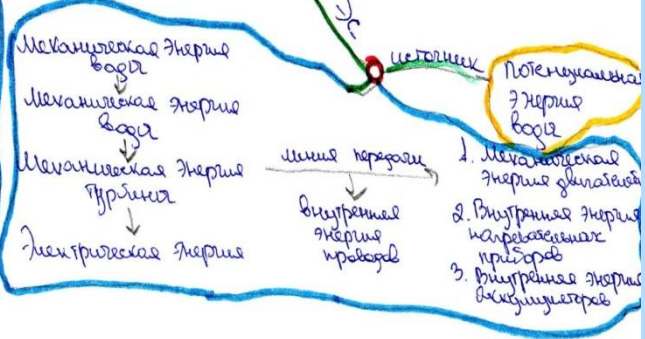 ЭС
источник
Потенциальная
энергия
воды
Механическая Энергия
воды
Механическая Энергия
воды
Механическая Энергия
турбины
Электрическая Энергия
линия передачи
внутренняя
энергия
проводов
1. Механическая
энергия двигателей
2. Внутренняя энергия
нагревательных
приборов
3. Внутренняя энергия
аккумуляторов